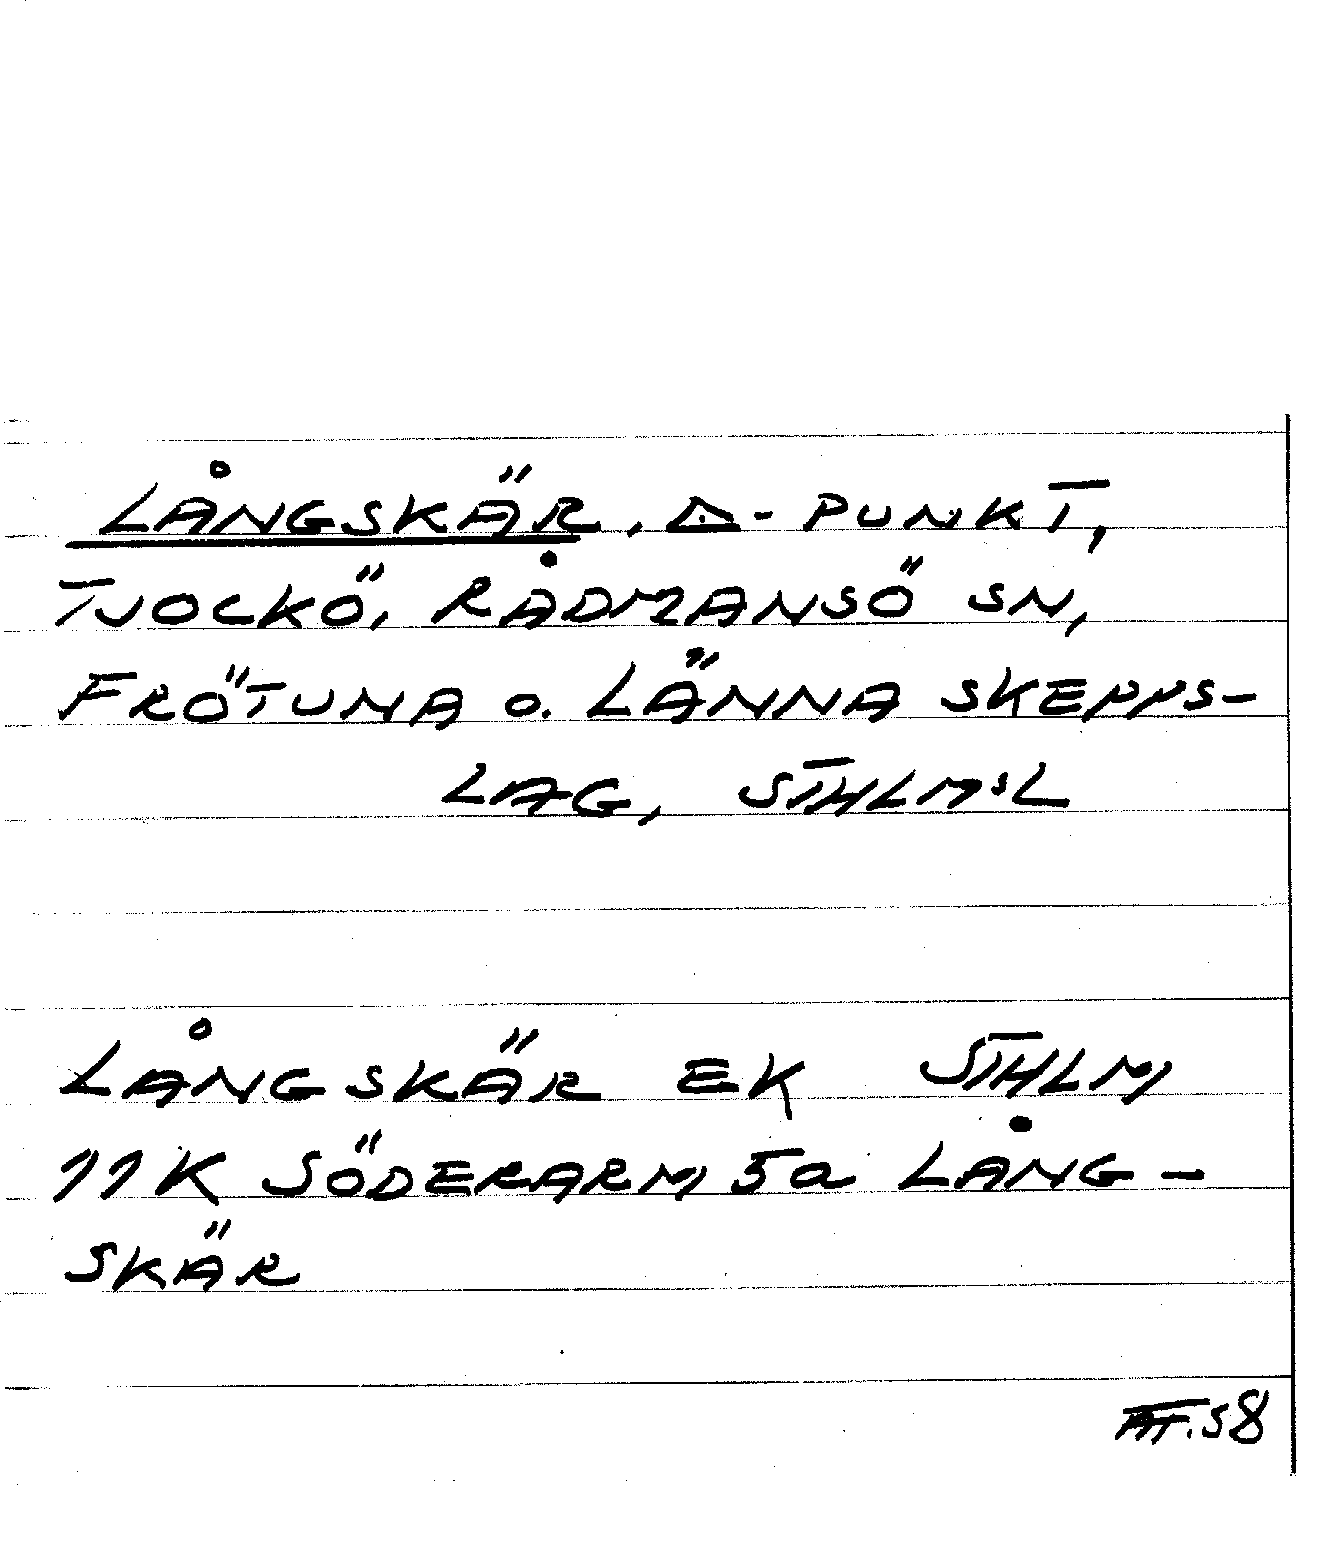 LÅNGSKÄR, △-PUNKT,
TJOCKÖ, RÅDMANSÖ SN,
FRÖTUNA O. LÄNNA SKEPPS-
LAG, STHLMSL
LÅNGSKÄR EK STHLM
11K SÖDERARM 5a LÅNG-
SKÄR
AT.58